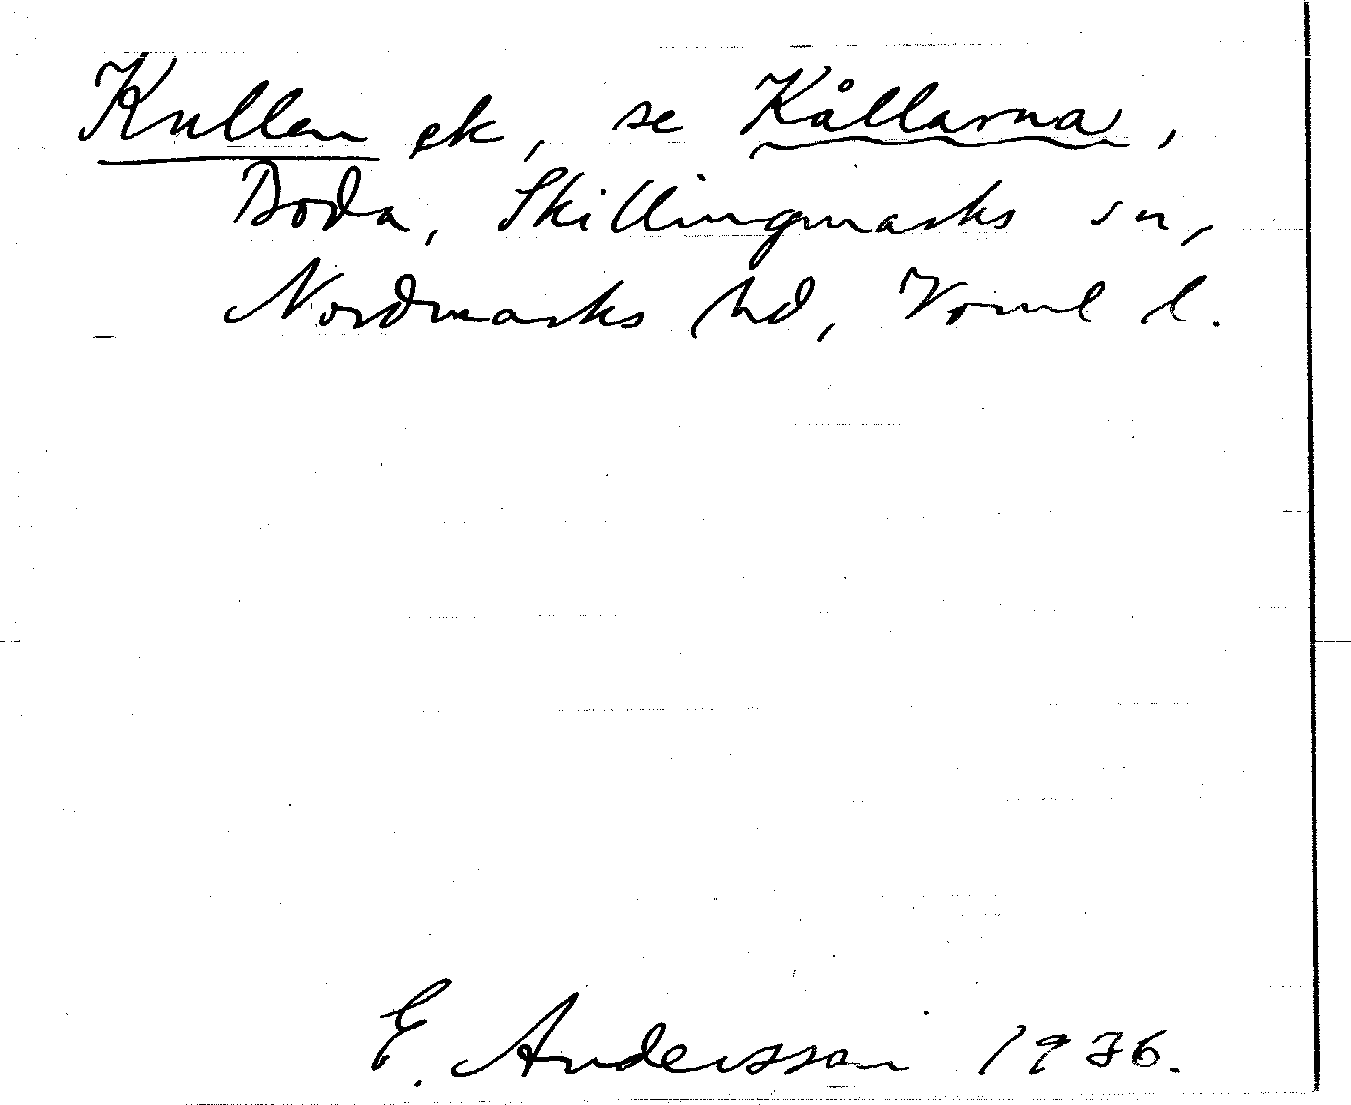 Kullen ek, se Kållarna,
Boda, Skillingmarks sn,
Nordmarks hd, Vörml l.
E. Andersson 1936.